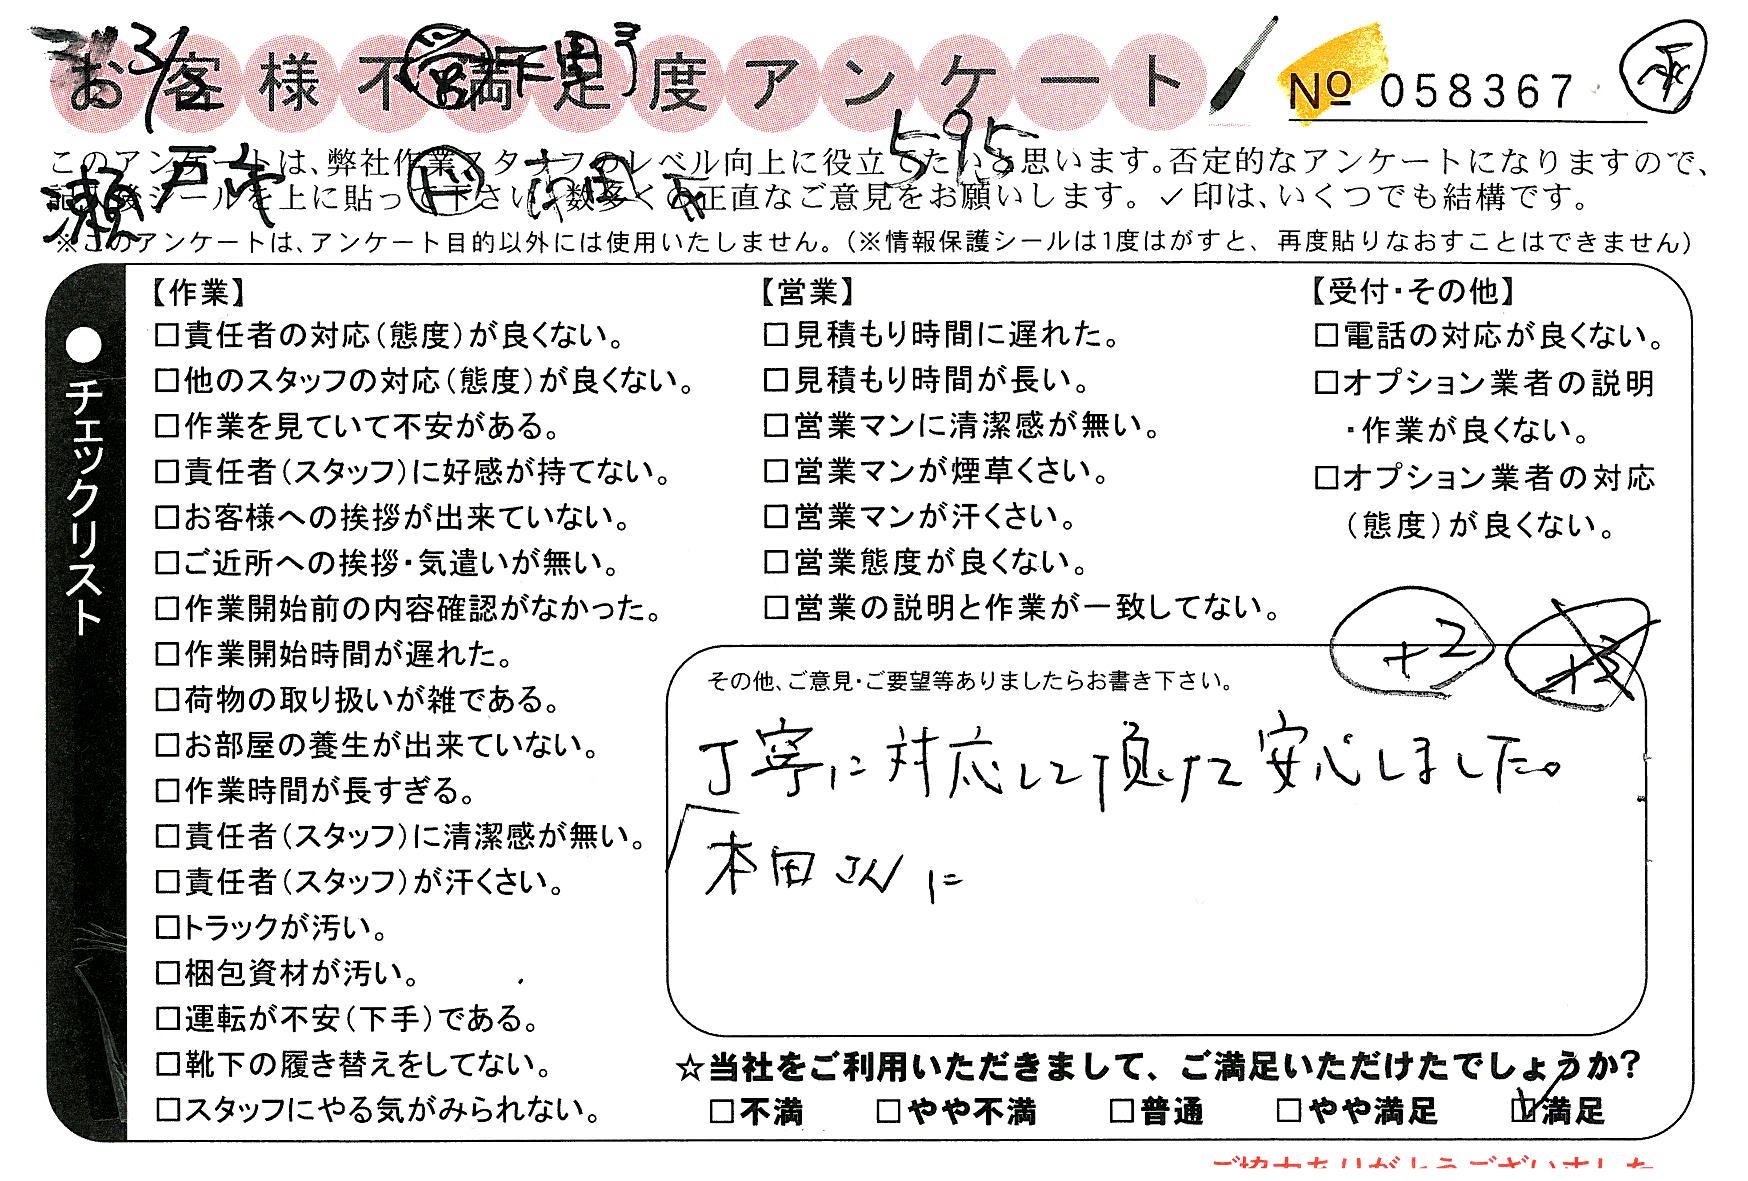 お客様不満足度アンケート
№ 058367
3/2
595
瀬戸
このアンケートは、弊社作業スタッフのレベル向上に役立てたいと思います。否定的なアンケートになりますので、
記入後シールを上に貼って下さい。数多くの正直なご意見をお願いします。✓印は、いくつでも結構です。
※このアンケートは、アンケート目的以外には使用いたしません。(※情報保護シールは1度はがすと、再度貼りなおすことはできません)
●チェックリスト
【作業】
□責任者の対応(態度)が良くない。
□他のスタッフの対応(態度)が良くない。
□作業を見ていて不安がある。
□責任者(スタッフ)に好感が持てない。
□お客様への挨拶が出来ていない。
□ご近所への挨拶・気遣いが無い。
□作業開始前の内容確認がなかった。
□作業開始時間が遅れた。
□荷物の取り扱いが雑である。
□お部屋の養生が出来ていない。
□作業時間が長すぎる。
□責任者(スタッフ)に清潔感が無い。
□責任者(スタッフ)が汗くさい。
□トラックが汚い。
□梱包資材が汚い。
□運転が不安(下手)である。
□靴下の履き替えをしてない。
□スタッフにやる気がみられない。
【営業】
□見積もり時間に遅れた。
□見積もり時間が長い。
□営業マンに清潔感が無い。
□営業マンが煙草くさい。
□営業マンが汗くさい。
□営業態度が良くない。
□営業の説明と作業が一致してない。
【受付・その他】
□電話の対応が良くない。
□オプション業者の説明
・作業が良くない。
□オプション業者の対応
(態度)が良くない。
+2
その他、ご意見・ご要望等ありましたらお書き下さい。
丁寧に対応して頂けて安心しました。
本田さんに
☆当社をご利用いただきまして、ご満足いただけたでしょうか?
□不満 □やや不満 □普通 □やや満足 ☑満足
ご協力ありがとうございました